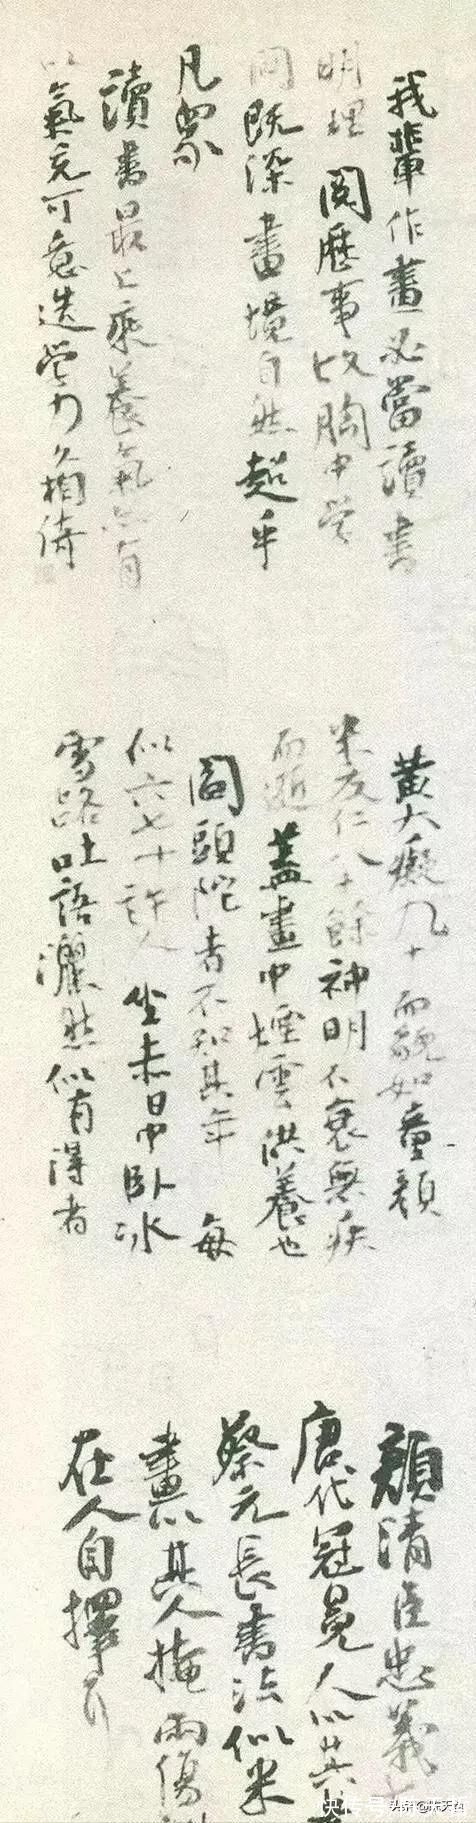 我輩作畫必當讀書
明理閱歷事故胸中學
問既深畫境自然超乎
凡眾
讀書最上乘養氣亦有
以氣充可意造學力久相倚
黃大癡九十而貌如童顏
米友仁八十餘神明不衰無疾
而逝蓋畫中煙雲供養也
閻頭陀者不知其年每
似六七十許人坐赤日中臥冰
雪路吐語灑然似有得者
顏清臣忠義
唐代冠冕人以其
蔡元長書法似米
畫以其人掩兩傷
在人自擇